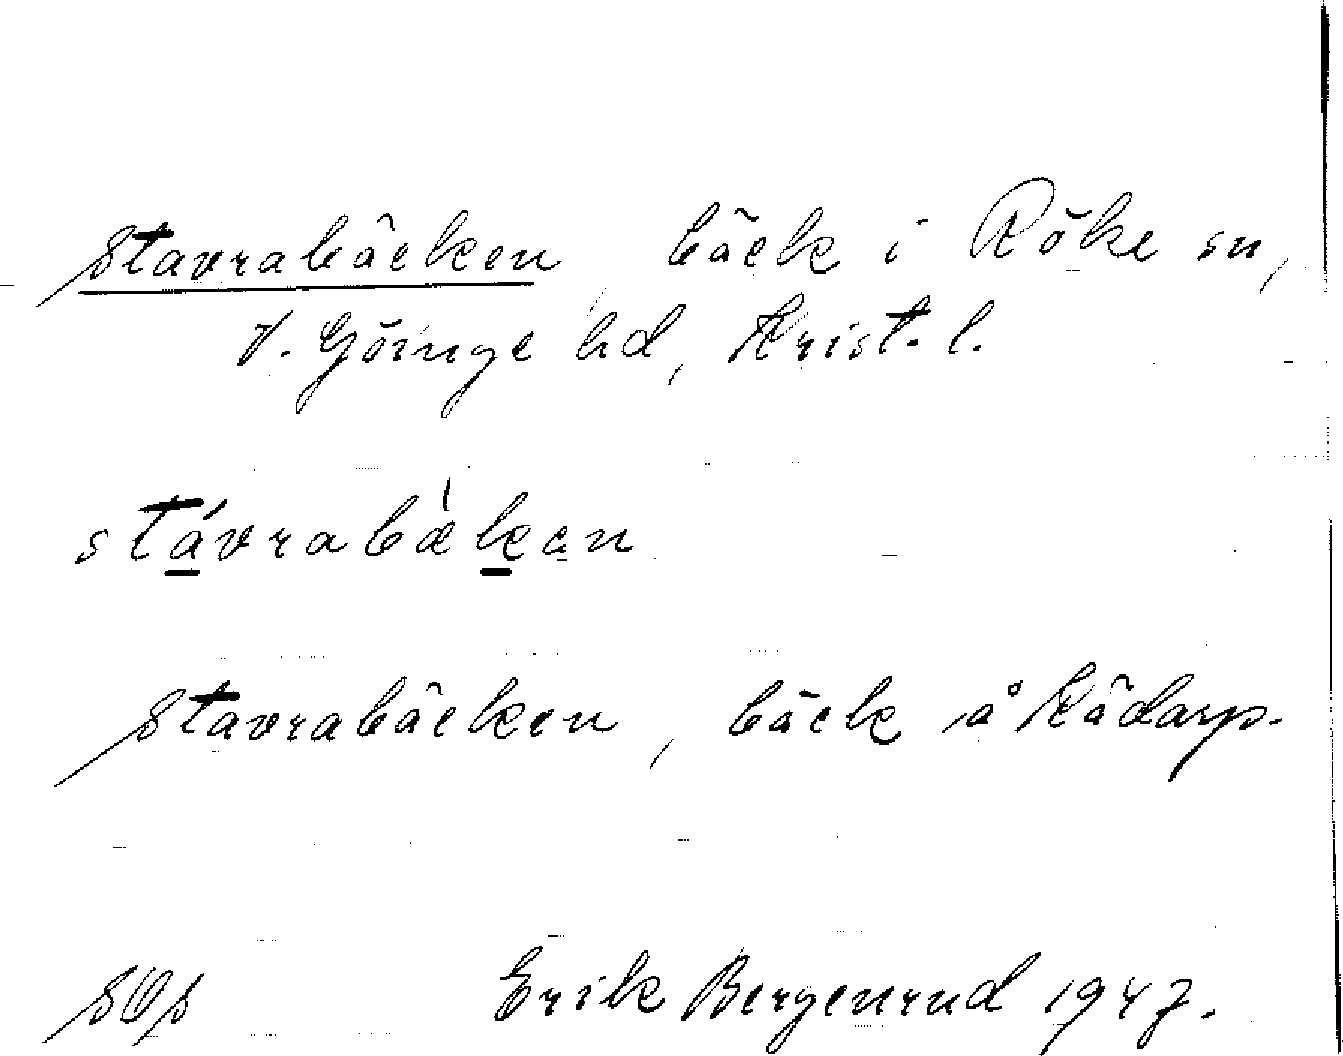 Stavrabäcken bäck i Röke sn,
V. Göinge hd, Krist. l.
stávrabæ̀kan
Stavrabäcken, bäck å Kädarp.
SOs Erik Bergenrud 1947.